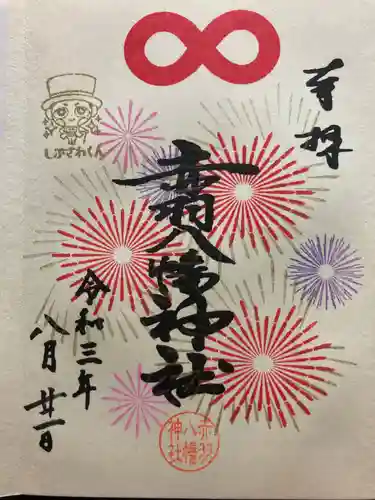 奉拝
赤羽八幡神社
令和三年
八月廿一日
しぶさわくん
赤羽
八幡
神社